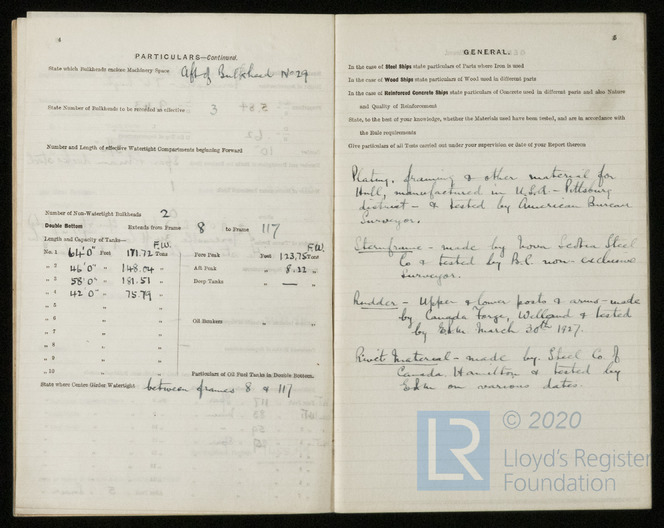 4
PARTICULARS—Continued.
State which Bulkheads enclose Machinery Space Aft of Bulkhead No 29
State Number of Bulkheads to be recorded as effective 3
Number and Length of effective Watertight Compartments beginning Forward
Number of Non-Watertight Bulkheads 2
Double Bottom Extends from Frame 8 to Frame 117
Length and Capacity of Tanks—
F.W. F.W.
No. 1 64'0" Feet 171.72 Tons Fore Peak Feet 123.75 Tons
„ 2 46'0" „ 148.04 „ Aft Peak „ 8.22 „
„ 3 58'0" „ 181.51 „ Deep Tanks „ — „
„ 4 42'0" „ 75.79 „
„ 5 „ „
„ 6 „ „ Oil Bunkers „ „
„ 7 „ „
„ 8 „ „
„ 9 „ „
„ 10 Particulars of Oil Fuel Tanks in Double Bottom.
State where Centre Girder Watertight between frames 8 & 117
5
GENERAL.
In the case of Steel Ships state particulars of Parts where Iron is used
In the case of Wood Ships state particulars of Wood used in different parts
In the case of Reinforced Concrete Ships state particulars of Concrete used in different parts and also Nature
and Quality of Reinforcement
State, to the best of your knowledge, whether the Materials used have been tested, and are in accordance with
the Rule requirements
Give particulars of all Tests carried out under your supervision or date of your Report thereon
Plating, framing & other material for
Hull, manufactured in U.S.A - Pittsburg
district - & tested by American Bureau
Surveyor.
Sternframe - made by Nova Scotia Steel
Co & tested by B.C. non-exclusive
Surveyor.
Rudder - Upper & lower posts & arms - made
by Canada Forge, Welland & tested
by March 30th 1927.
Rivet Material - made by Steel Co. of
Canada Hamilton & tested by
on various dates.
© 2020
LR
Lloyd's Register
Foundation